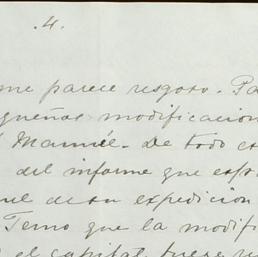 .4.
me parece riesgoso. Pa
queñas modificacion
Manuel. De todo es
del informe que esp
que de su expedicion
Temo que la modifi
el capital fuese